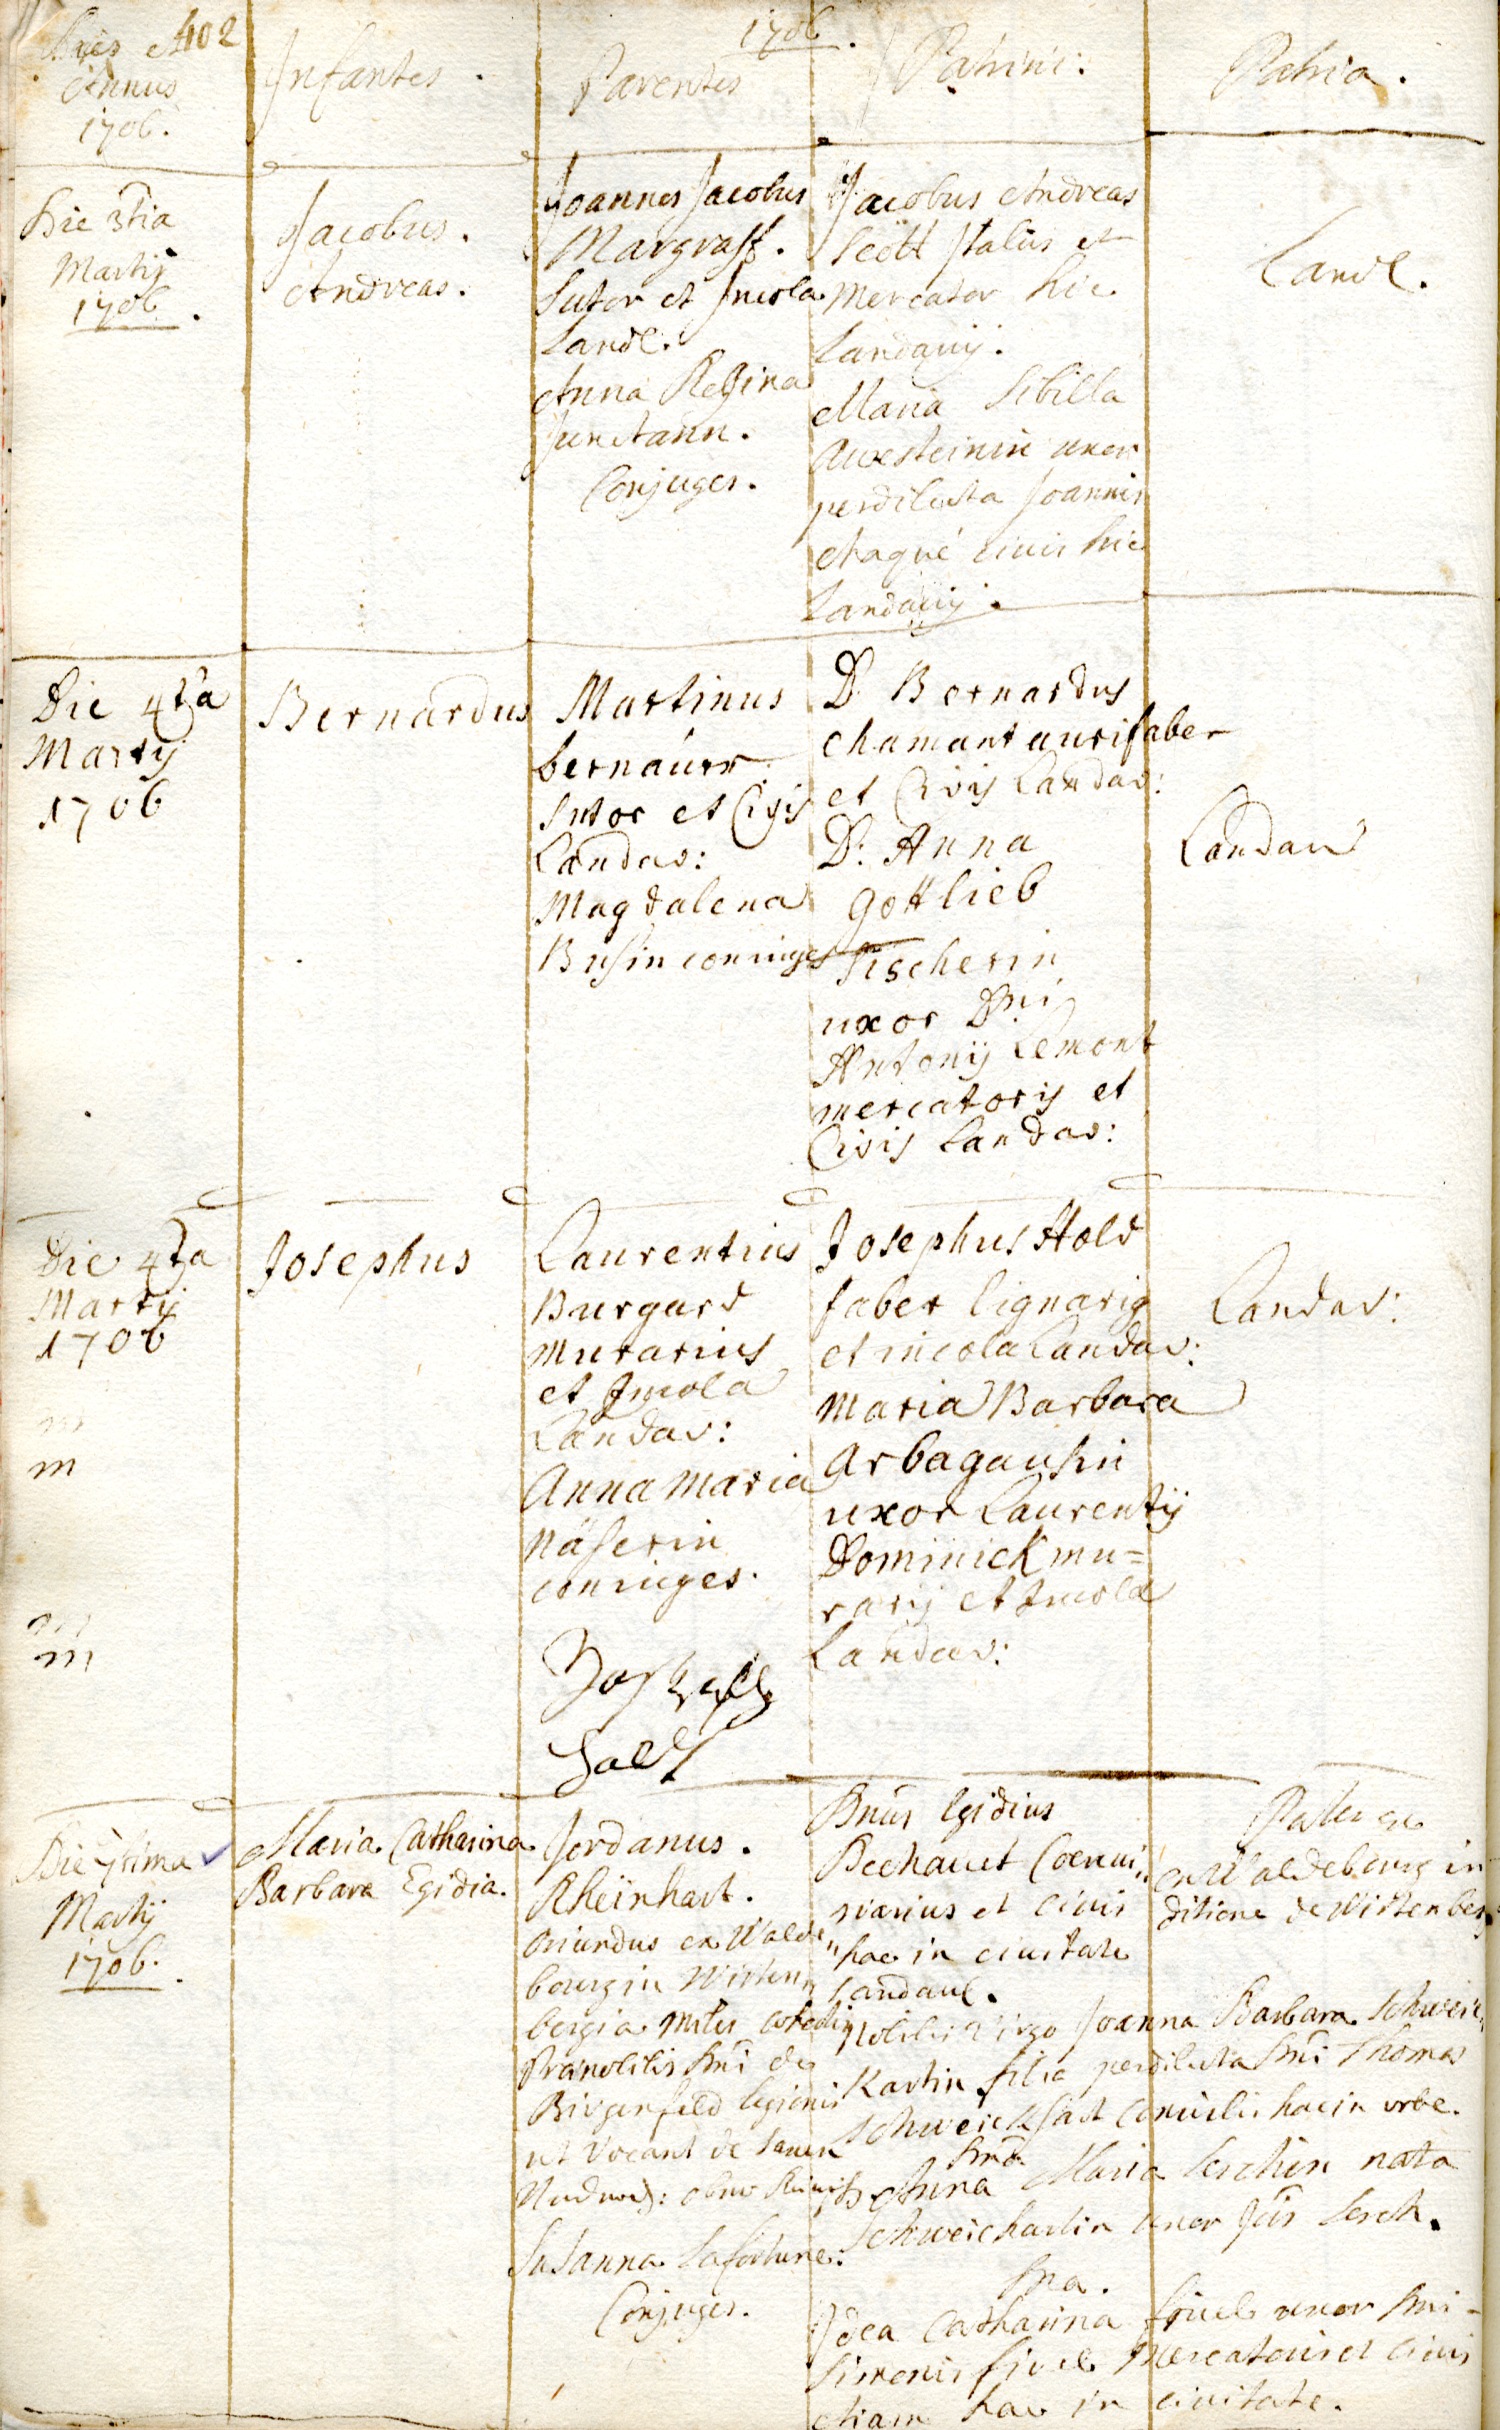 402
1706.
Dies et
Annus
1706.
Infantes.
Parentes
Patrini:
Patria.
Die 3tia
Martij
1706.
Jacobus.
Andreas.
Joannes Jacobus
Margraff.
Sutor et Incola
Land.
Anna Regina
Conjuges.
Jacobus Andreas
Scött Italus et
Mercator hic
Landavij.
Maria Sibilla
uxor
perdilecta Joannis
civis hic
Landavij.
Land.
Die 4ta
Martij
1706
Bernardus
Martinus
bernauer
Sutor et Civis
Landav:
Magdalena
Busin coniuges
D. Bernardus
Chamant aurifaber
et Civis Landav:
D. Anna
Gottlieb
Fischerin
uxor Dni
Antonij Lemont
mercatoris et
Civis Landav:
Landav
Die 4ta
Martij
1706
m
m
m
m
Josephus
Laurentius
Burgard
Murarius
et Incola
Landav:
Anna Maria
Näserin
coniuges.
Joseph
Holt
Josephus Hold
faber lignarig
et incola Landav:
Maria Barbara
Arbagausin
uxor Laurentij
Dominick mu=
rarij et Incola
Landav:
Landav:
Die 7tima
Martij
1706.
Maria Catharina
Barbara Egidia.
Jordanus.
Rheinhart.
oriundus ex Walde„
bourg in Wirten„
bergia Miles
Prænobilis Dni de
Birgenfeld legionis
ut vocant de
Susanna Lafortune:
Conjuges.
Dnus Egidius
Bechauet
et civis
hac in civitate
Landau.
Nobilis Virgo Joanna Barbara Schweic„
Kartin filia perdilecta Dni Thomas
Schweickhart Consulis hac in urbe.
Dna
Anna Maria Lerchin nata
Schweichartin uxor Lerch.
Dna.
Idea Catharina uxor Dni
Simonis Mercatoris et Civis
etiam hac in civitate.
Pater
ex Waldebourg in
ditione de Wirtenberg.